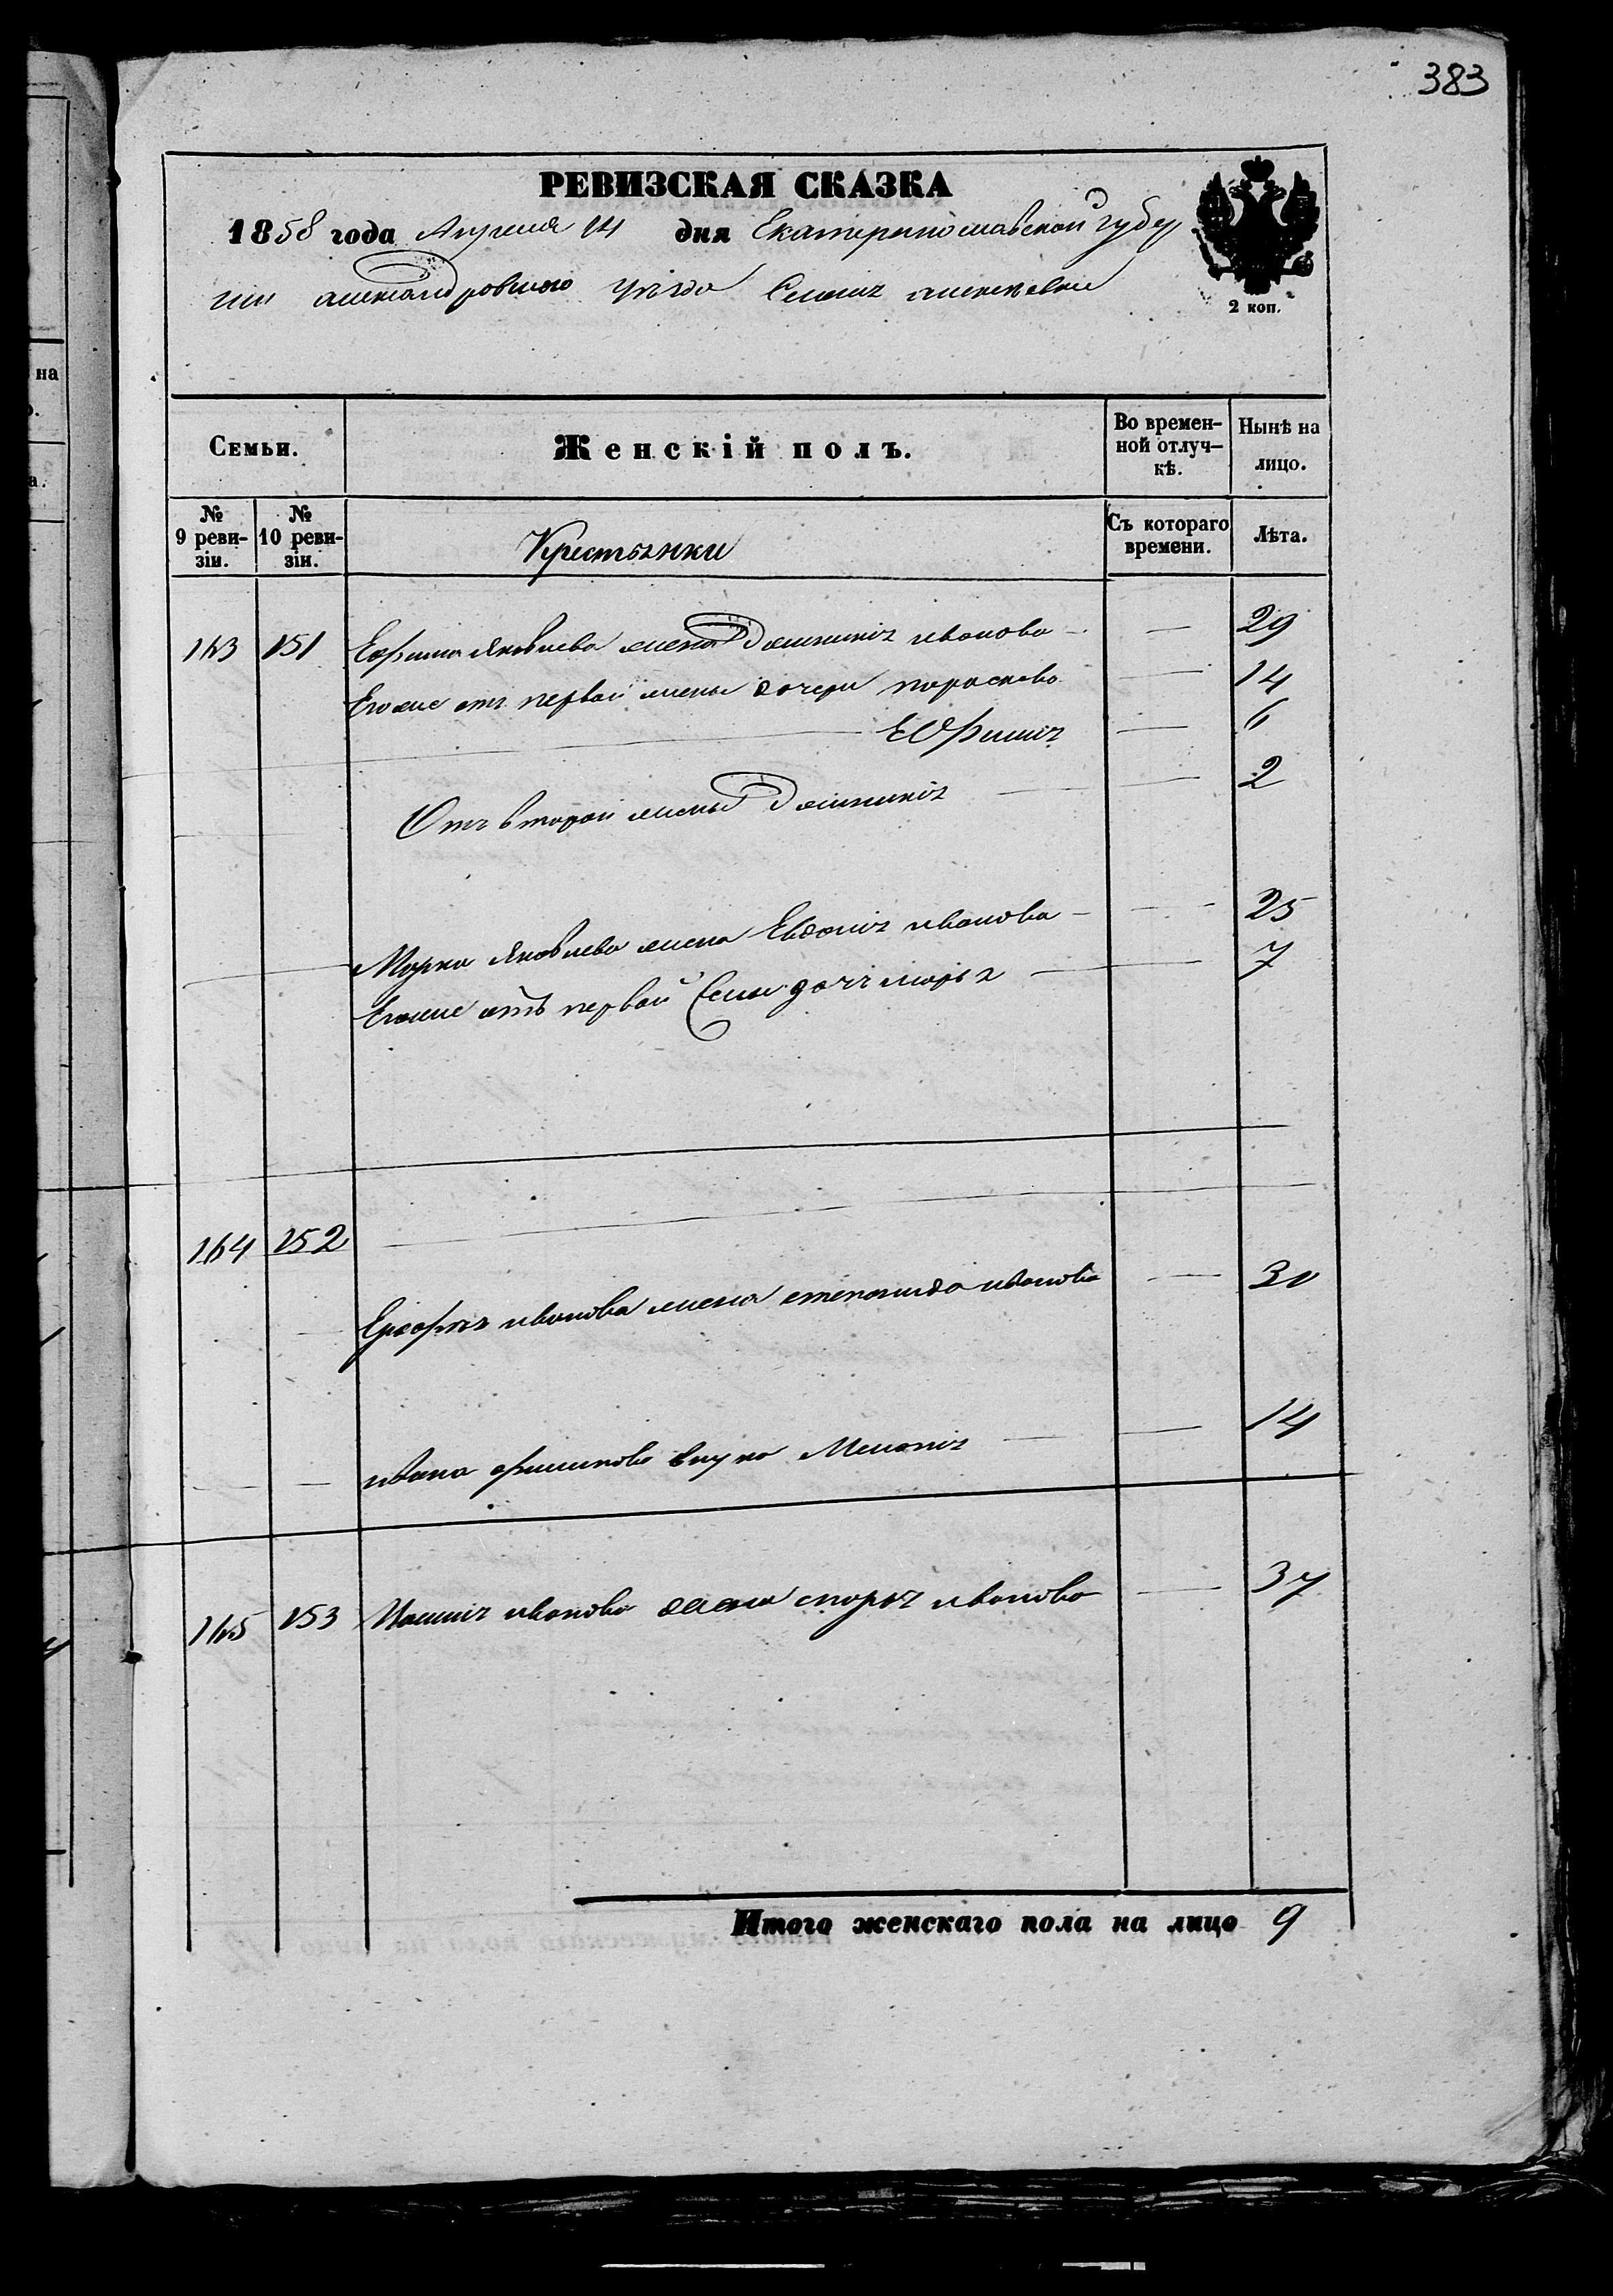 383
РЕВИЗСКАЯ СКАЗКА
1858 года Апреля 14 дня Екатеринославской губер
нии александровского уезда Селения алексеевки
2 коп.
Семьи. Женскій полъ. Во времен-ной отлуч-кѣ. Нынѣ на лицо.
№ 9 реви-зіи. № 10 реви-зіи. Крестьянки Съ котораго времени. Лѣта.
163 151 Ефима Яковлева жена Домникія иванова — 29
Егоже отъ первой жены дочери параскева — 14
Ефимія — 6
Отъ второй жены Домникія — 2
Марка Яковлева жена Евдокія иванова — 25
Егоже отъ первой жены дочь марья — 7
164 152
иванова жена степанида иванова — 30
ивана филипова внука Меланія — 14
165 153 иванова жена марья иванова — 37
Итого женскаго пола на лицо 9
на